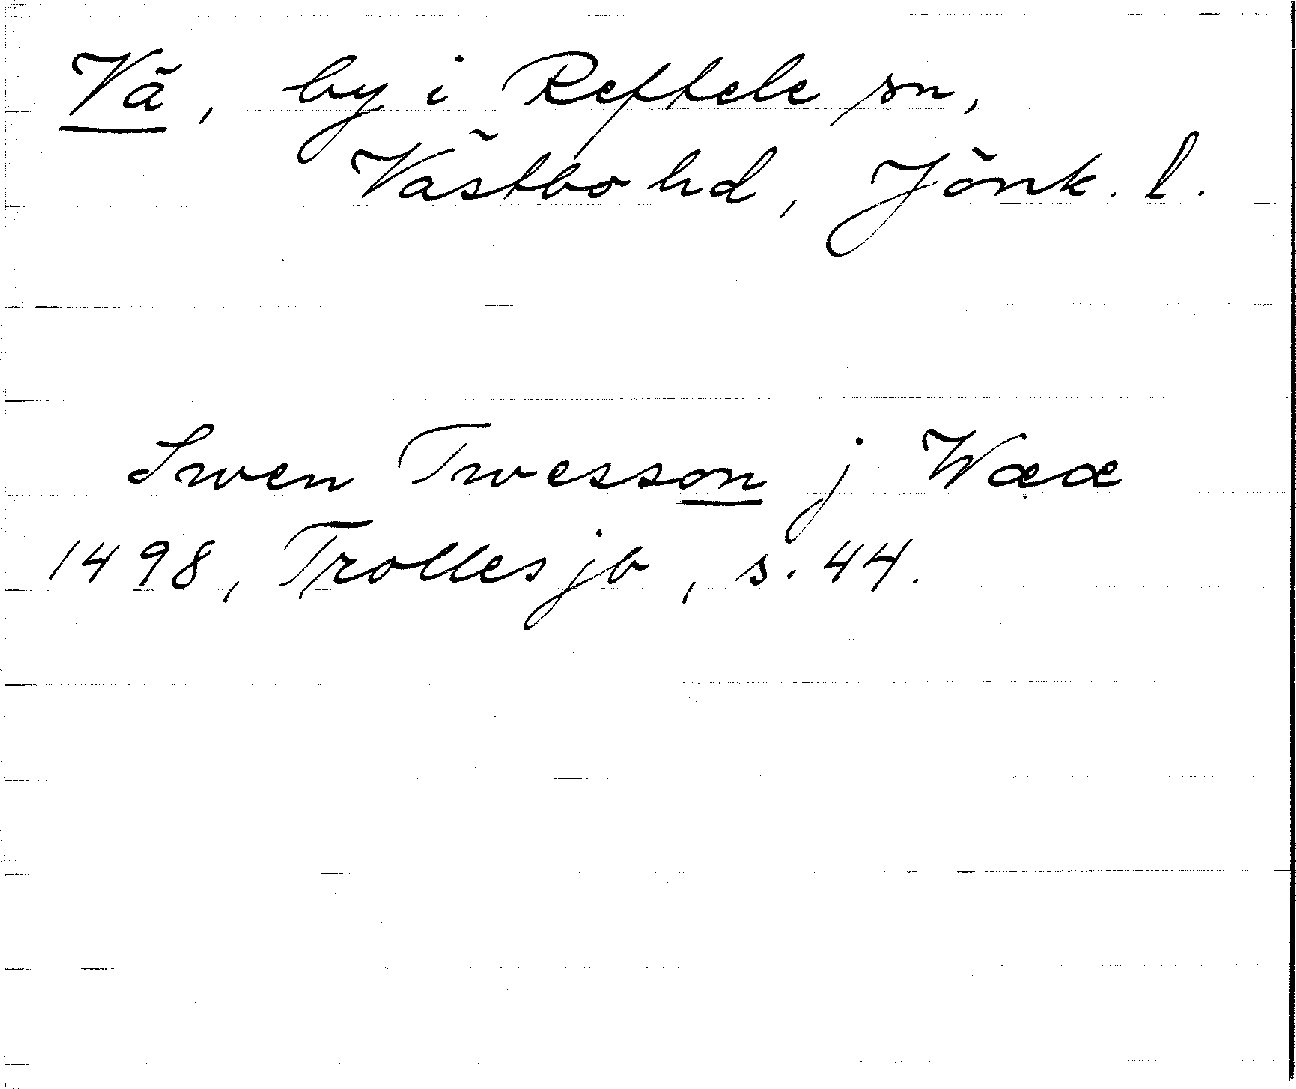 Vä, by i Reftele sn,
Västbo hd, Jönk. l.
Swen Twesson j Wææ
1498, Trolles jb, s. 44.